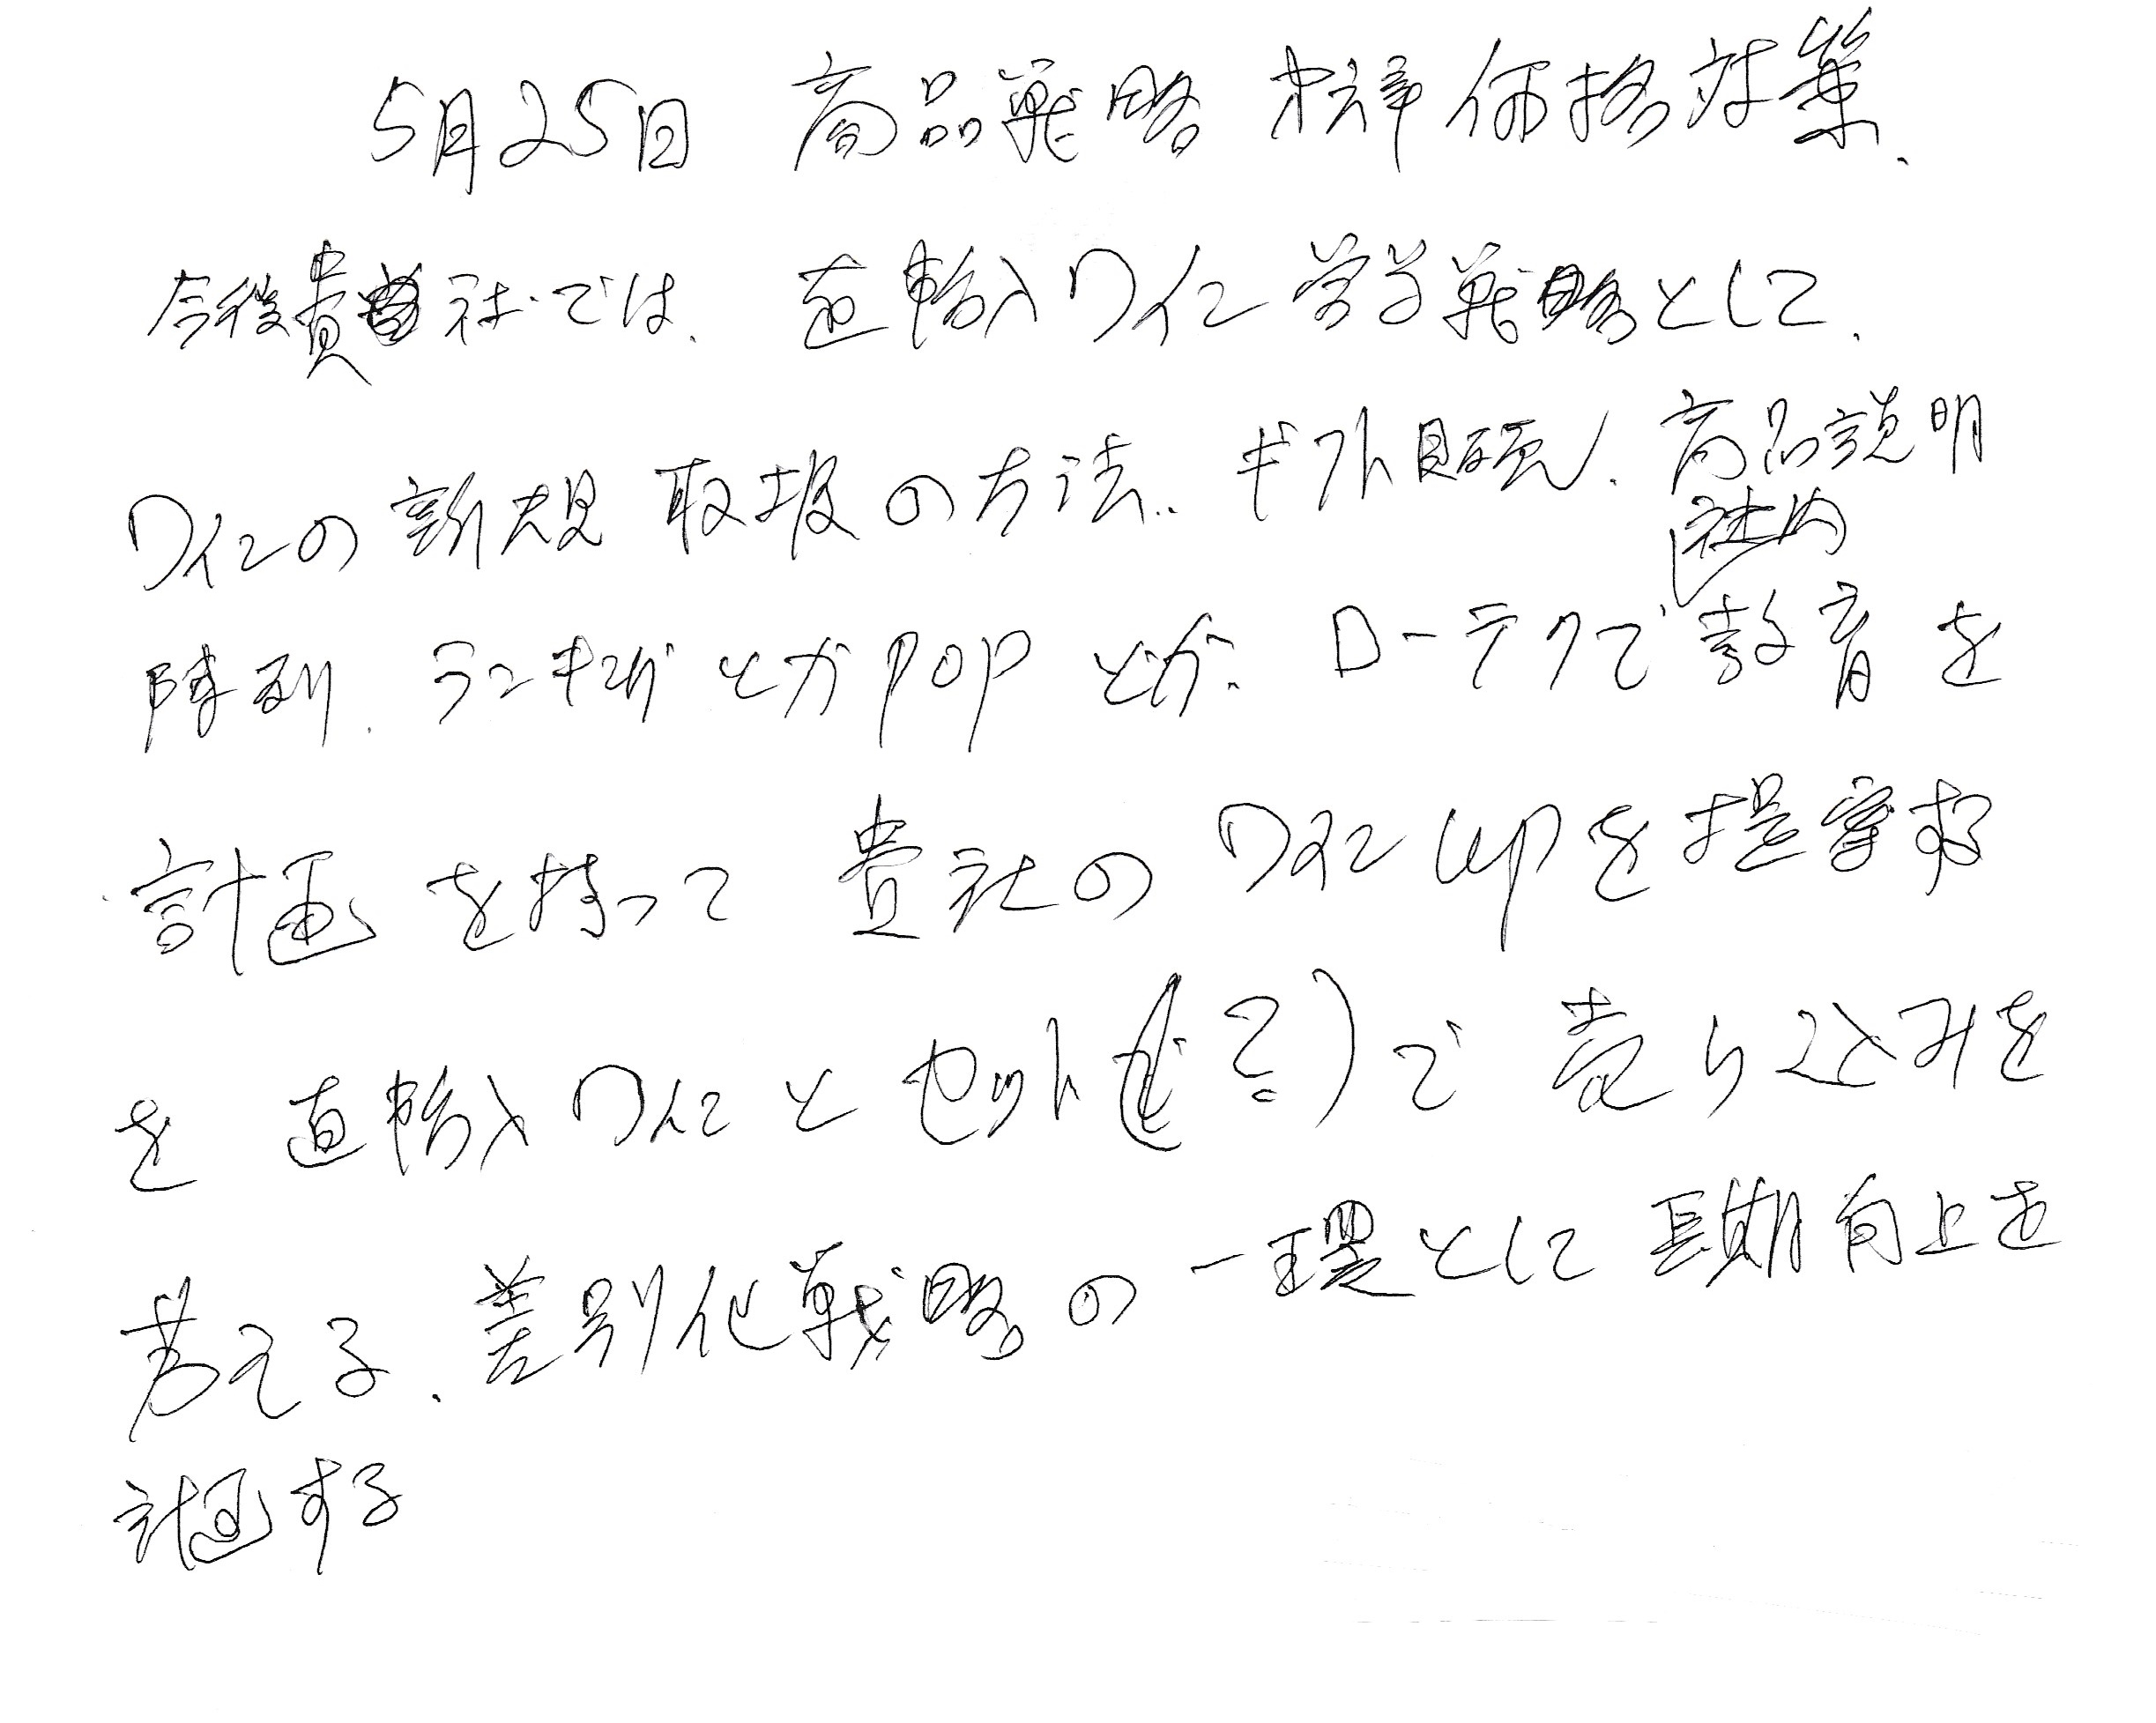 5月25日 商品戦略 価格対策、
今後貴社では、直輸入ワイン 戦略として、
ワインの新規取扱の方法、ギフト販売、商品説明
社内
陳列、ランキングとかPOPとか、ローテクで教育を
計画を持って 貴社のワインUPを提案する
を 直輸入ワインとセット(ビ？)で 売り込みを
考える、差別化戦略の一環として長期向上を
計画する